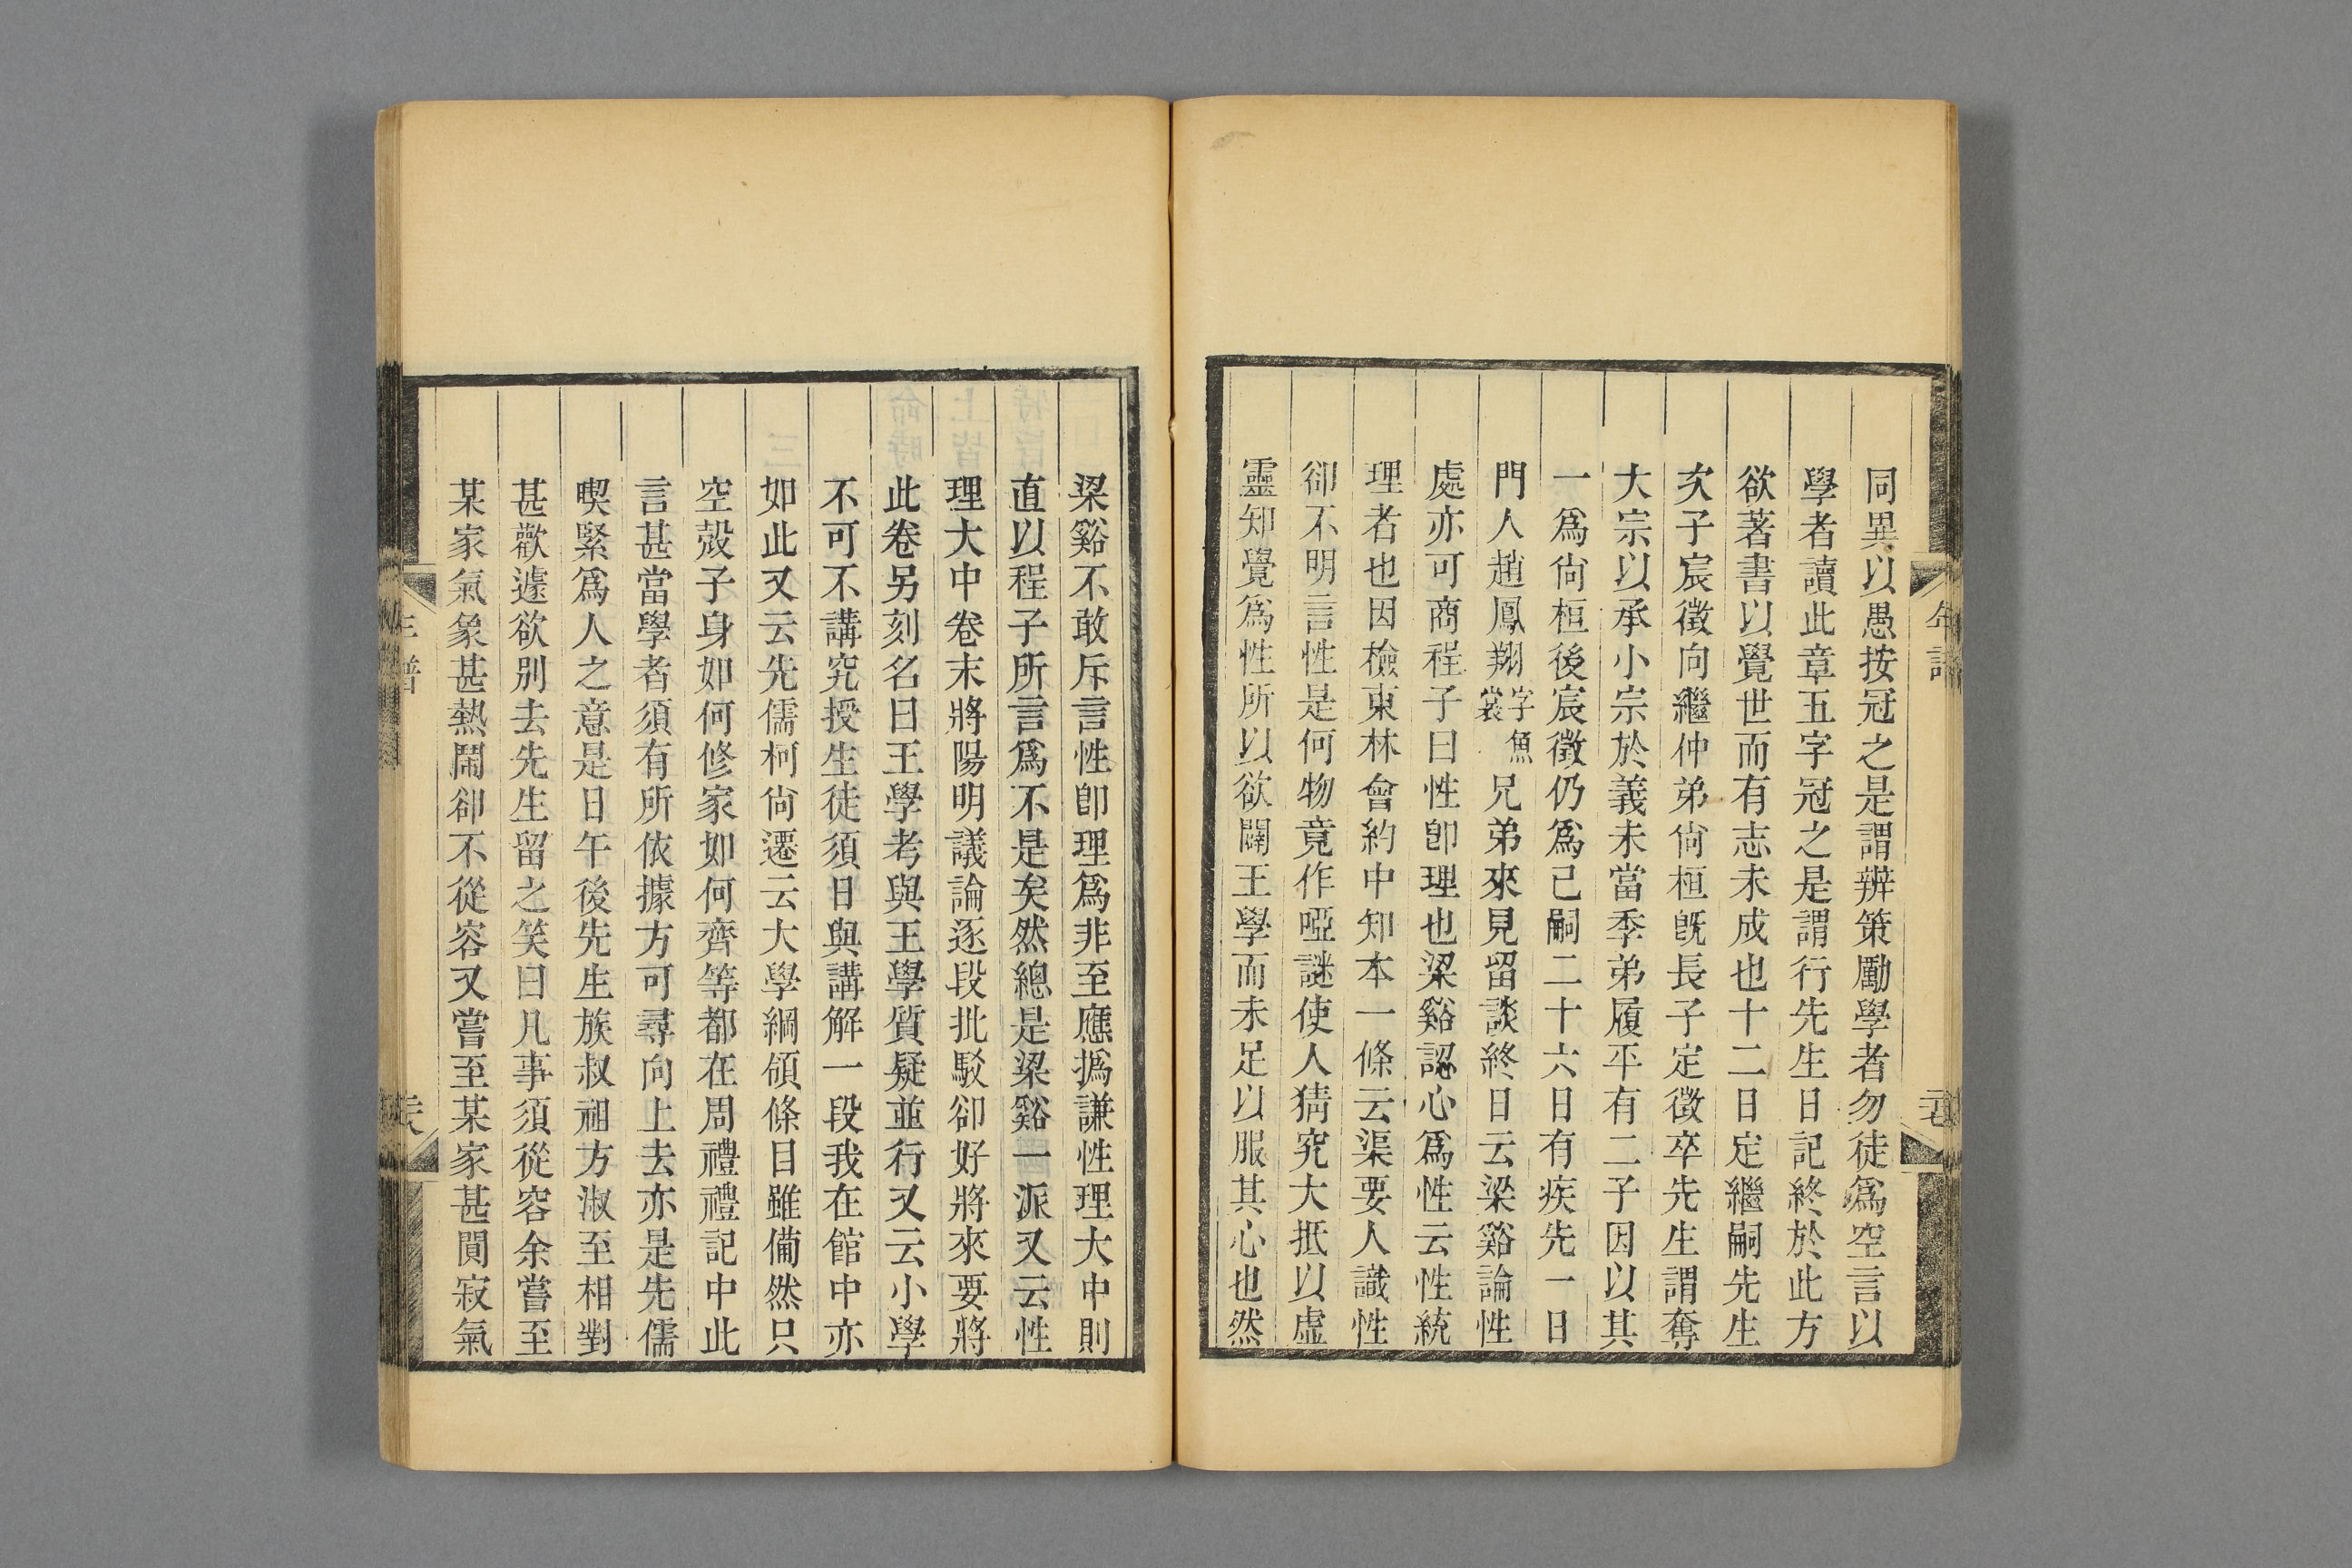 同異以愚按冠之是謂辨策勵學者勿徒爲空言以
學者讀此章五字冠之是謂行先生日記終於此方
欲著書以覺世而有志未成也十二日定繼嗣先生
次子宸徵向繼仲弟尙桓旣長子定徵卒先生謂奪
大宗以承小宗於義未當季弟履平有二子因以其
一爲尙桓後宸徵仍爲己嗣二十六日有疾先一日
門人趙鳳翔字魚裳兄弟來見留談終日云梁谿論性
處亦可商程子曰性卽理也梁谿認心爲性云性統
理者也因檢東林會約中知本一條云渠要人識性
卻不明言性是何物竟作啞謎使人猜究大抵以虛
靈知覺爲性所以欲闢王學而未足以服其心也然
年譜
梁谿不敢斥言性卽理爲非至應撝謙性理大中則
直以程子所言爲不是矣然總是梁谿一派又云性
理大中卷末將陽明議論逐段批駁卻好將來要將
此卷另刻名曰王學考與王學質疑並行又云小學
不可不講究授生徒須日與講解一段我在館中亦
如此又云先儒柯尙遷云大學綱領條目雖備然只
空殼子身如何修家如何齊等都在周禮禮記中此
言甚當學者須有所依據方可尋向上去亦是先儒
喫緊爲人之意是日午後先生族叔祖方淑至相對
甚歡遽欲別去先生留之笑曰凡事須從容余嘗至
某家氣象甚熱鬧卻不從容又嘗至某家甚閴寂氣
譜